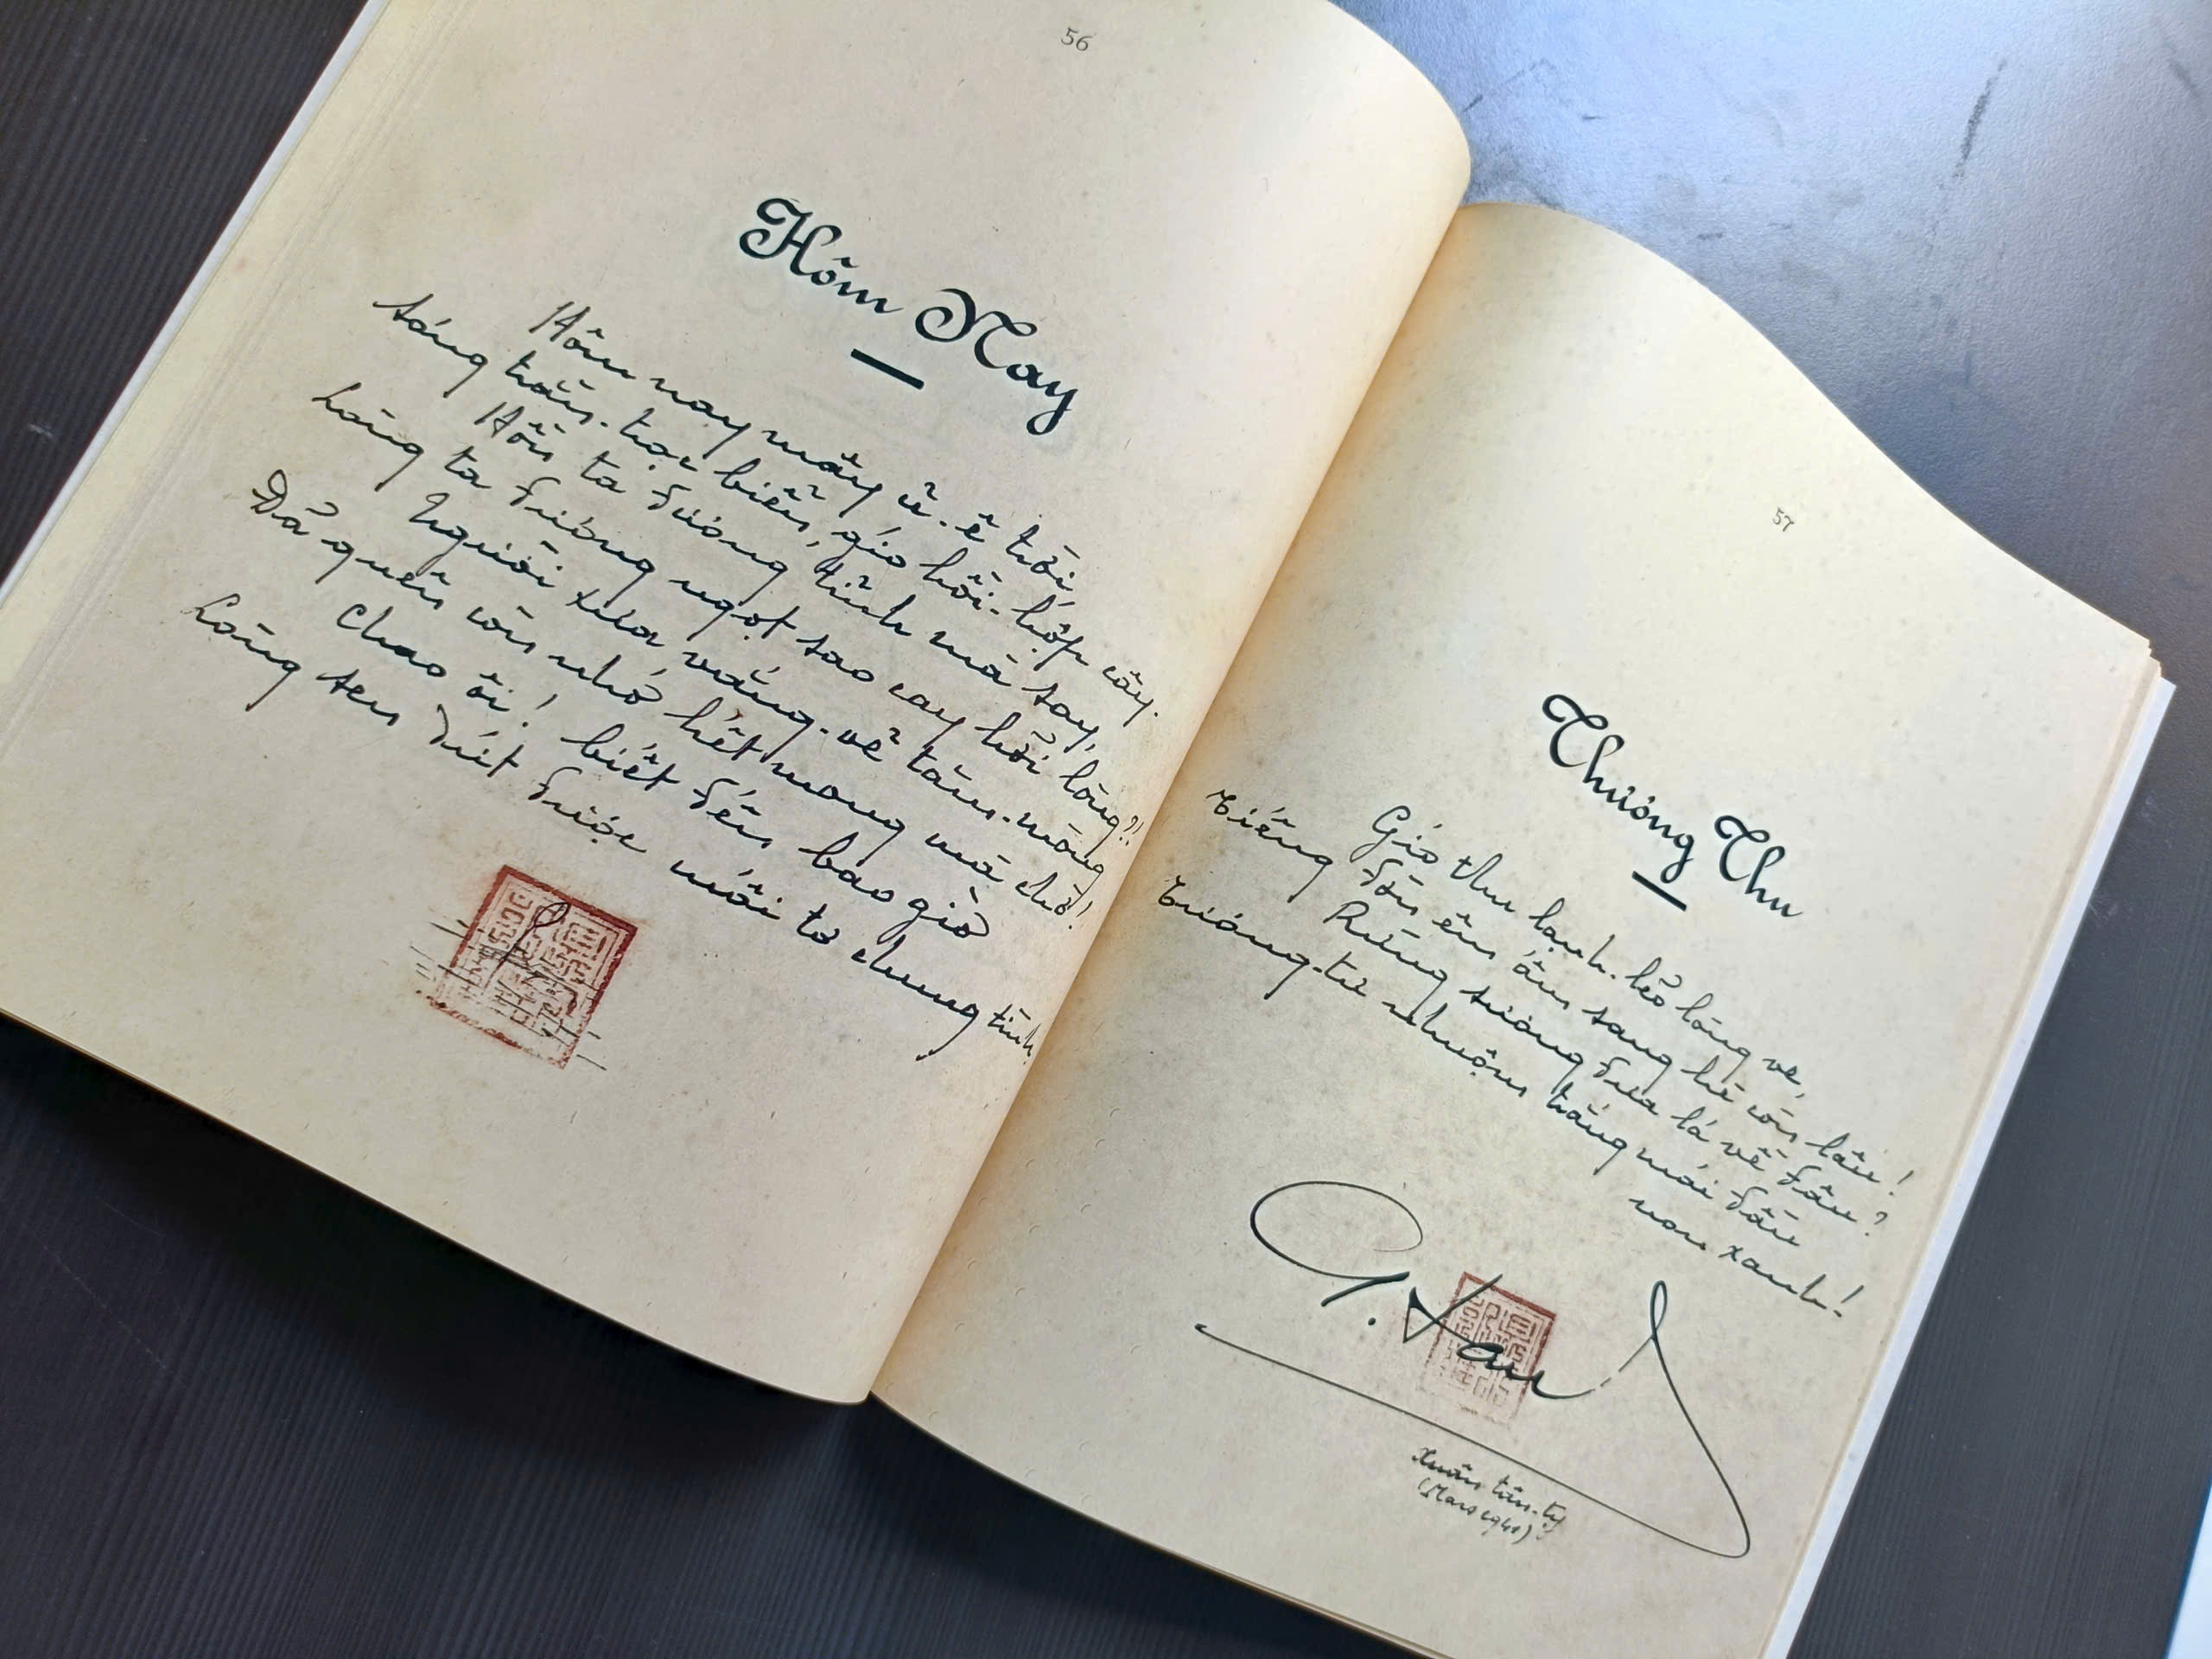 56
Hôm Nay
Hôm nay mây ủ-ê trôi,
sóng trần-trọc biển, gió hồi-hộp cây.
Hồn ta đương tỉnh mà say,
lòng ta đương ngọt sao cay hỡi lòng?!
Người xưa văng-vẳng tâm-mòng
Đã quên còn nhớ hết mong mà chờ!
Chao ôi! biết đến bao giờ
Lòng sen dứt được mối tơ chung tình
57
Thương Thu
Gió thu lạnh-lẽo lòng ve,
Tiếng đờn êm ấm sang hè còn lâu!
Rừng sương đưa lá về đâu?
Tương-tư nhuộm trắng mái đầu
non xanh!
Xuân tân-tỵ
(Mars 1941)